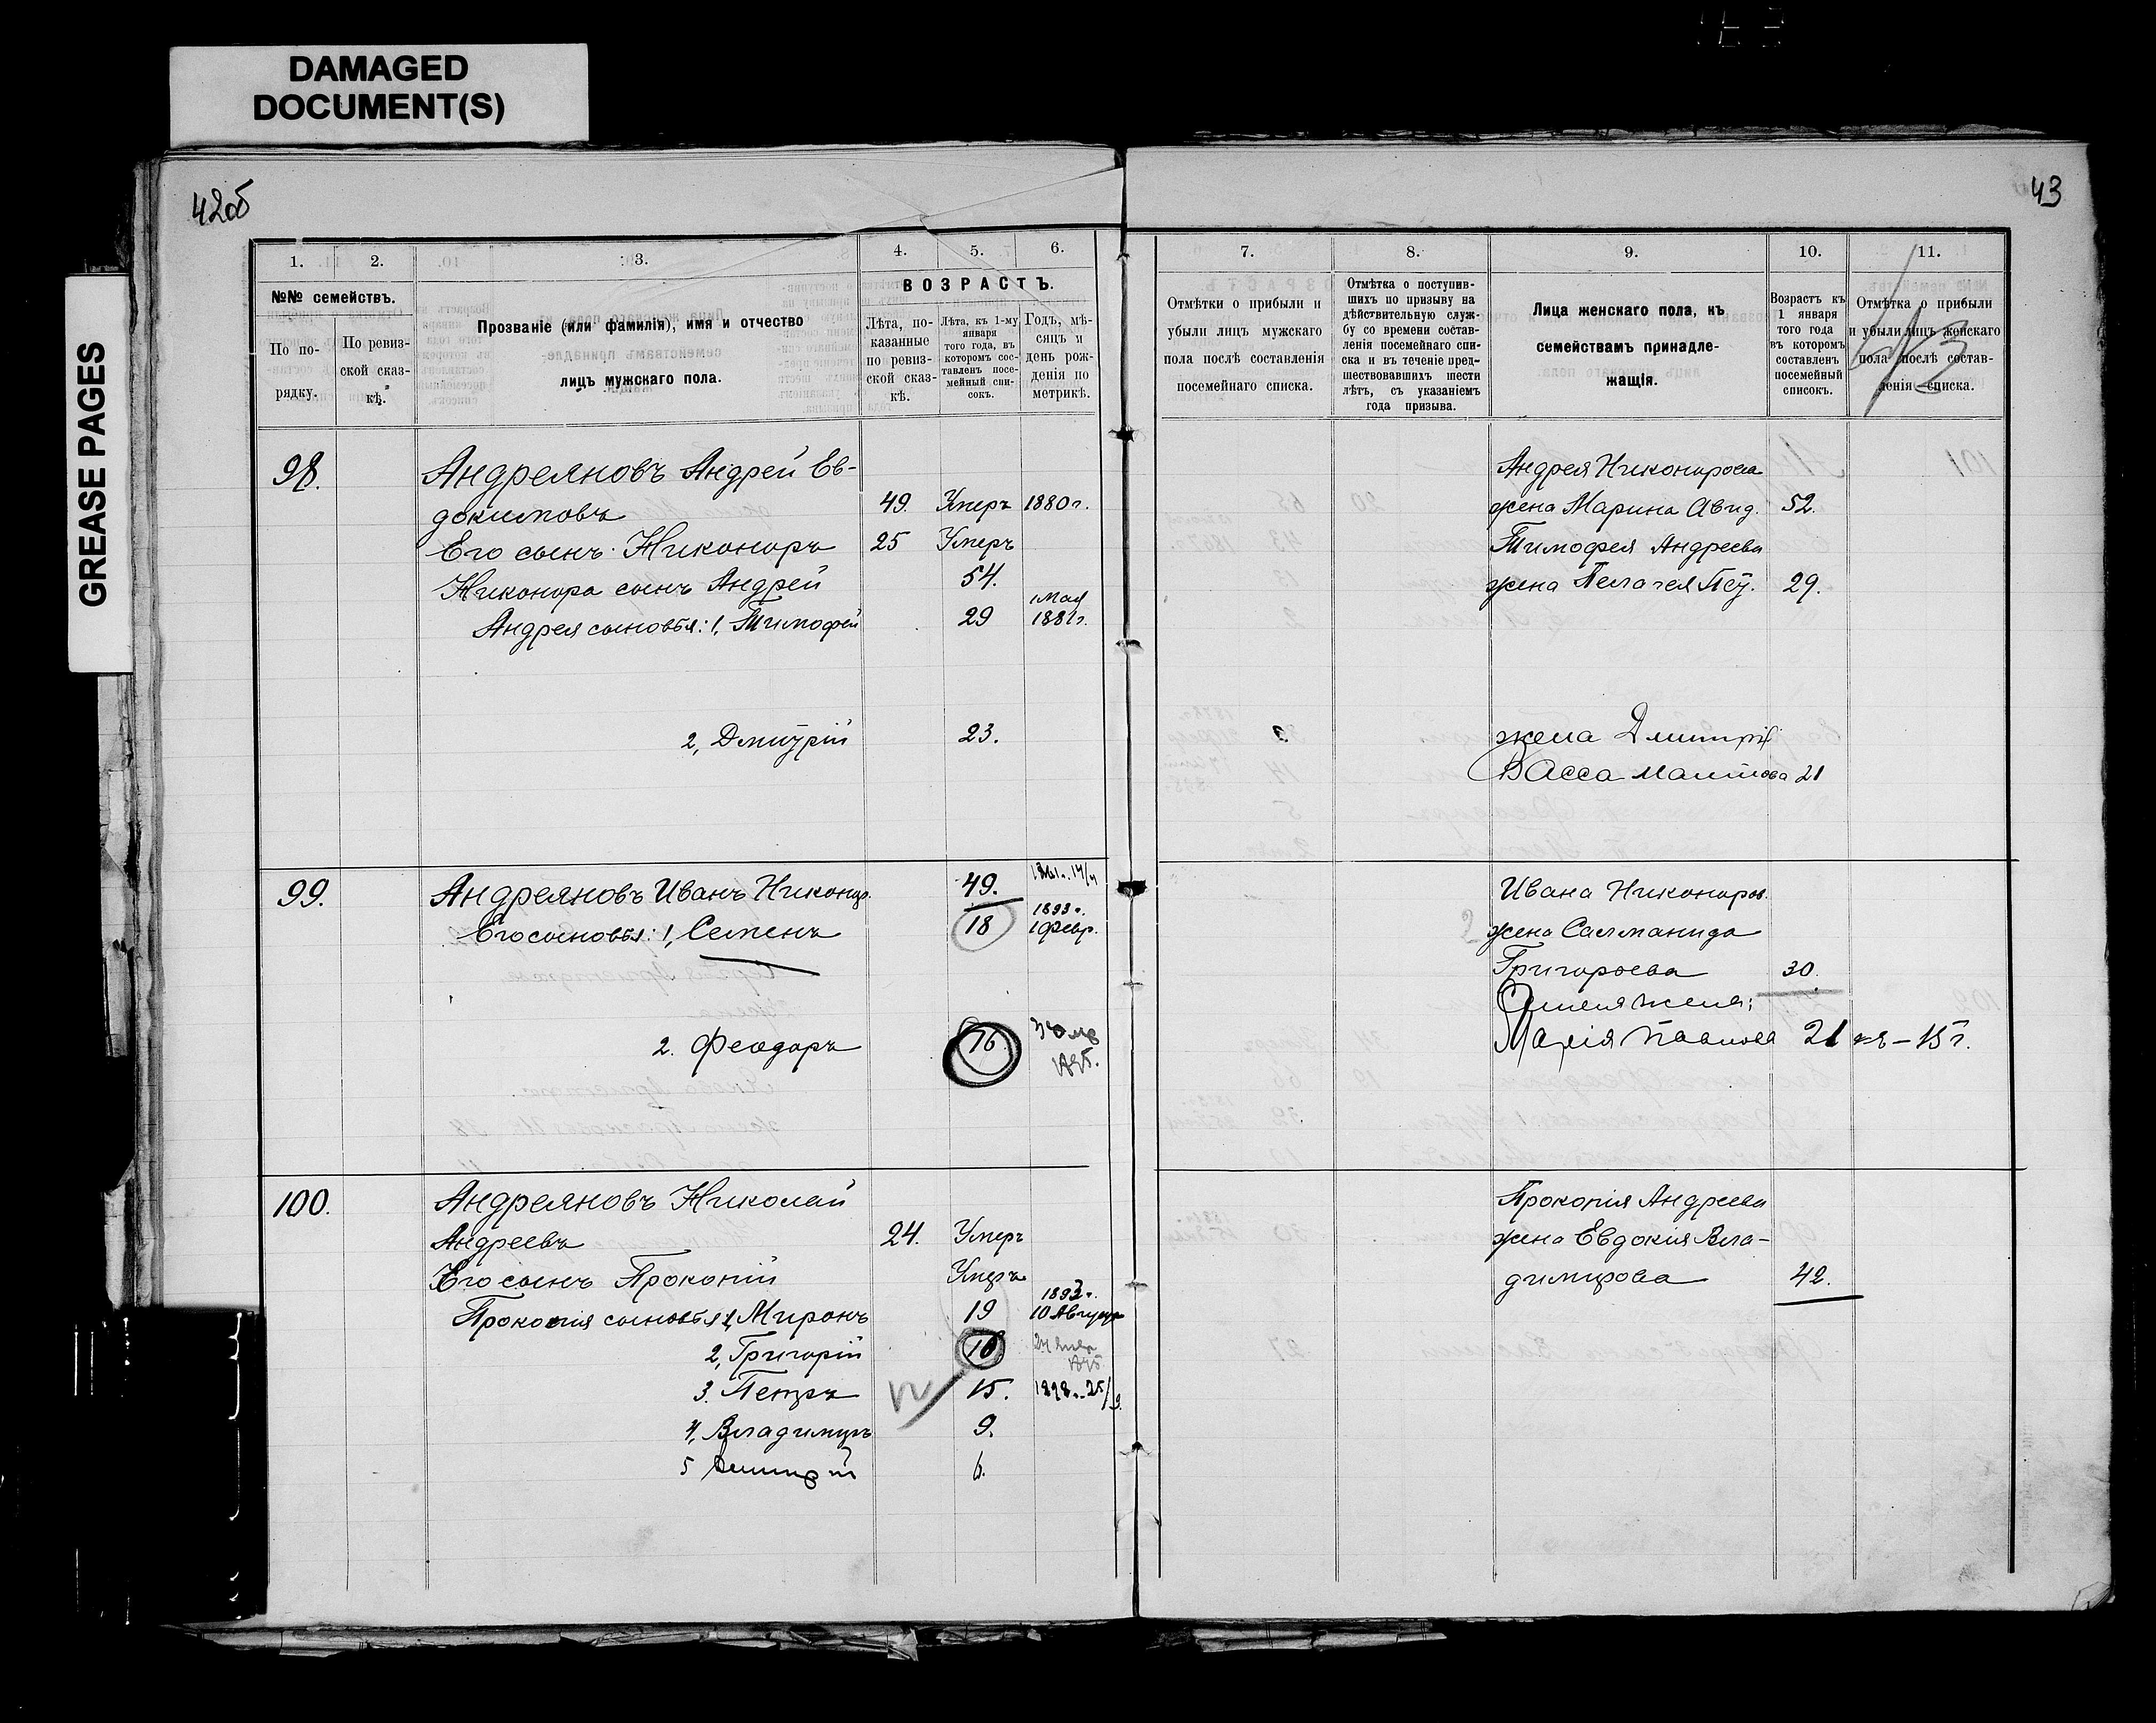 DAMAGED
DOCUMENT(S)
GREASE PAGES
42об
43
1. 2. 3. 4. 5. 6.
№№ семействъ.
По по-
рядку.
По ревиз-
ской сказ-
кѣ.
Прозваніе (или фамилія), имя и отчество
лицъ мужскаго пола.
ВОЗРАСТЪ.
Лѣта, по-
казанные
по ревиз-
ской сказ-
кѣ.
Лѣта, къ 1-му
января
того года, въ
которомъ сос-
тавленъ посе-
мейный спи-
сокъ.
Годъ, мѣ-
сяцъ и
день рож-
денія по
метрикѣ.
98.
Андреяновъ Андрей Ев-
докимовъ 49. Умеръ 1880 г.
Его сынъ Никоноръ 25 Умеръ
Никонора сынъ Андрей 54.
Андрея сыновья: 1, Тимофей 29 1 Мая
1881 г.
2, Дмитрій 23.
99. Андреяновъ Иванъ Никонор. 49.
Его сыновья: 1, Семенъ 18 1893 г.
1 Февр.
2. Феодоръ 16
100. Андреяновъ Николай
Андреевъ 24. Умеръ
Его сынъ Прокопій Умеръ
Прокопія сыновья 1, Миронъ 19 1893 г.
10 Августа
2, Григорій 16
3. Петръ 15. 1898 г. 25/9
4, Владимиръ 9.
5 Дмитрій 6.
7. 8. 9. 10. 11.
Отмѣтки о прибыли и
убыли лицъ мужскаго
пола послѣ составленія
посемейнаго списка.
Отмѣтка о поступив-
шихъ по призыву на
дѣйствительную служ-
бу со времени состав-
ленія посемейнаго спи-
ска и въ теченіе пред-
шествовавшихъ шести
лѣтъ, съ указаніемъ
года призыва.
Лица женскаго пола, къ
семействамъ принадле-
жащія.
Возрастъ къ
1 января
того года
въ которомъ
составленъ
посемейный
списокъ.
Отмѣтка о прибыли
и убыли лицъ женскаго
пола послѣ состав-
ленія списка.
Андрея Никонорова
жена Марина Авид. 52.
Тимофея Андреева
жена Пелагея Пет. 29.
жена Дмитрія
Васса 21
Ивана Никоноров.
жена Саломанида
Григорьева 30.
Семена жена:
Марія Павлова 21 15 г.
Прокопія Андреева
жена Евдокія Вла-
димирова 42.